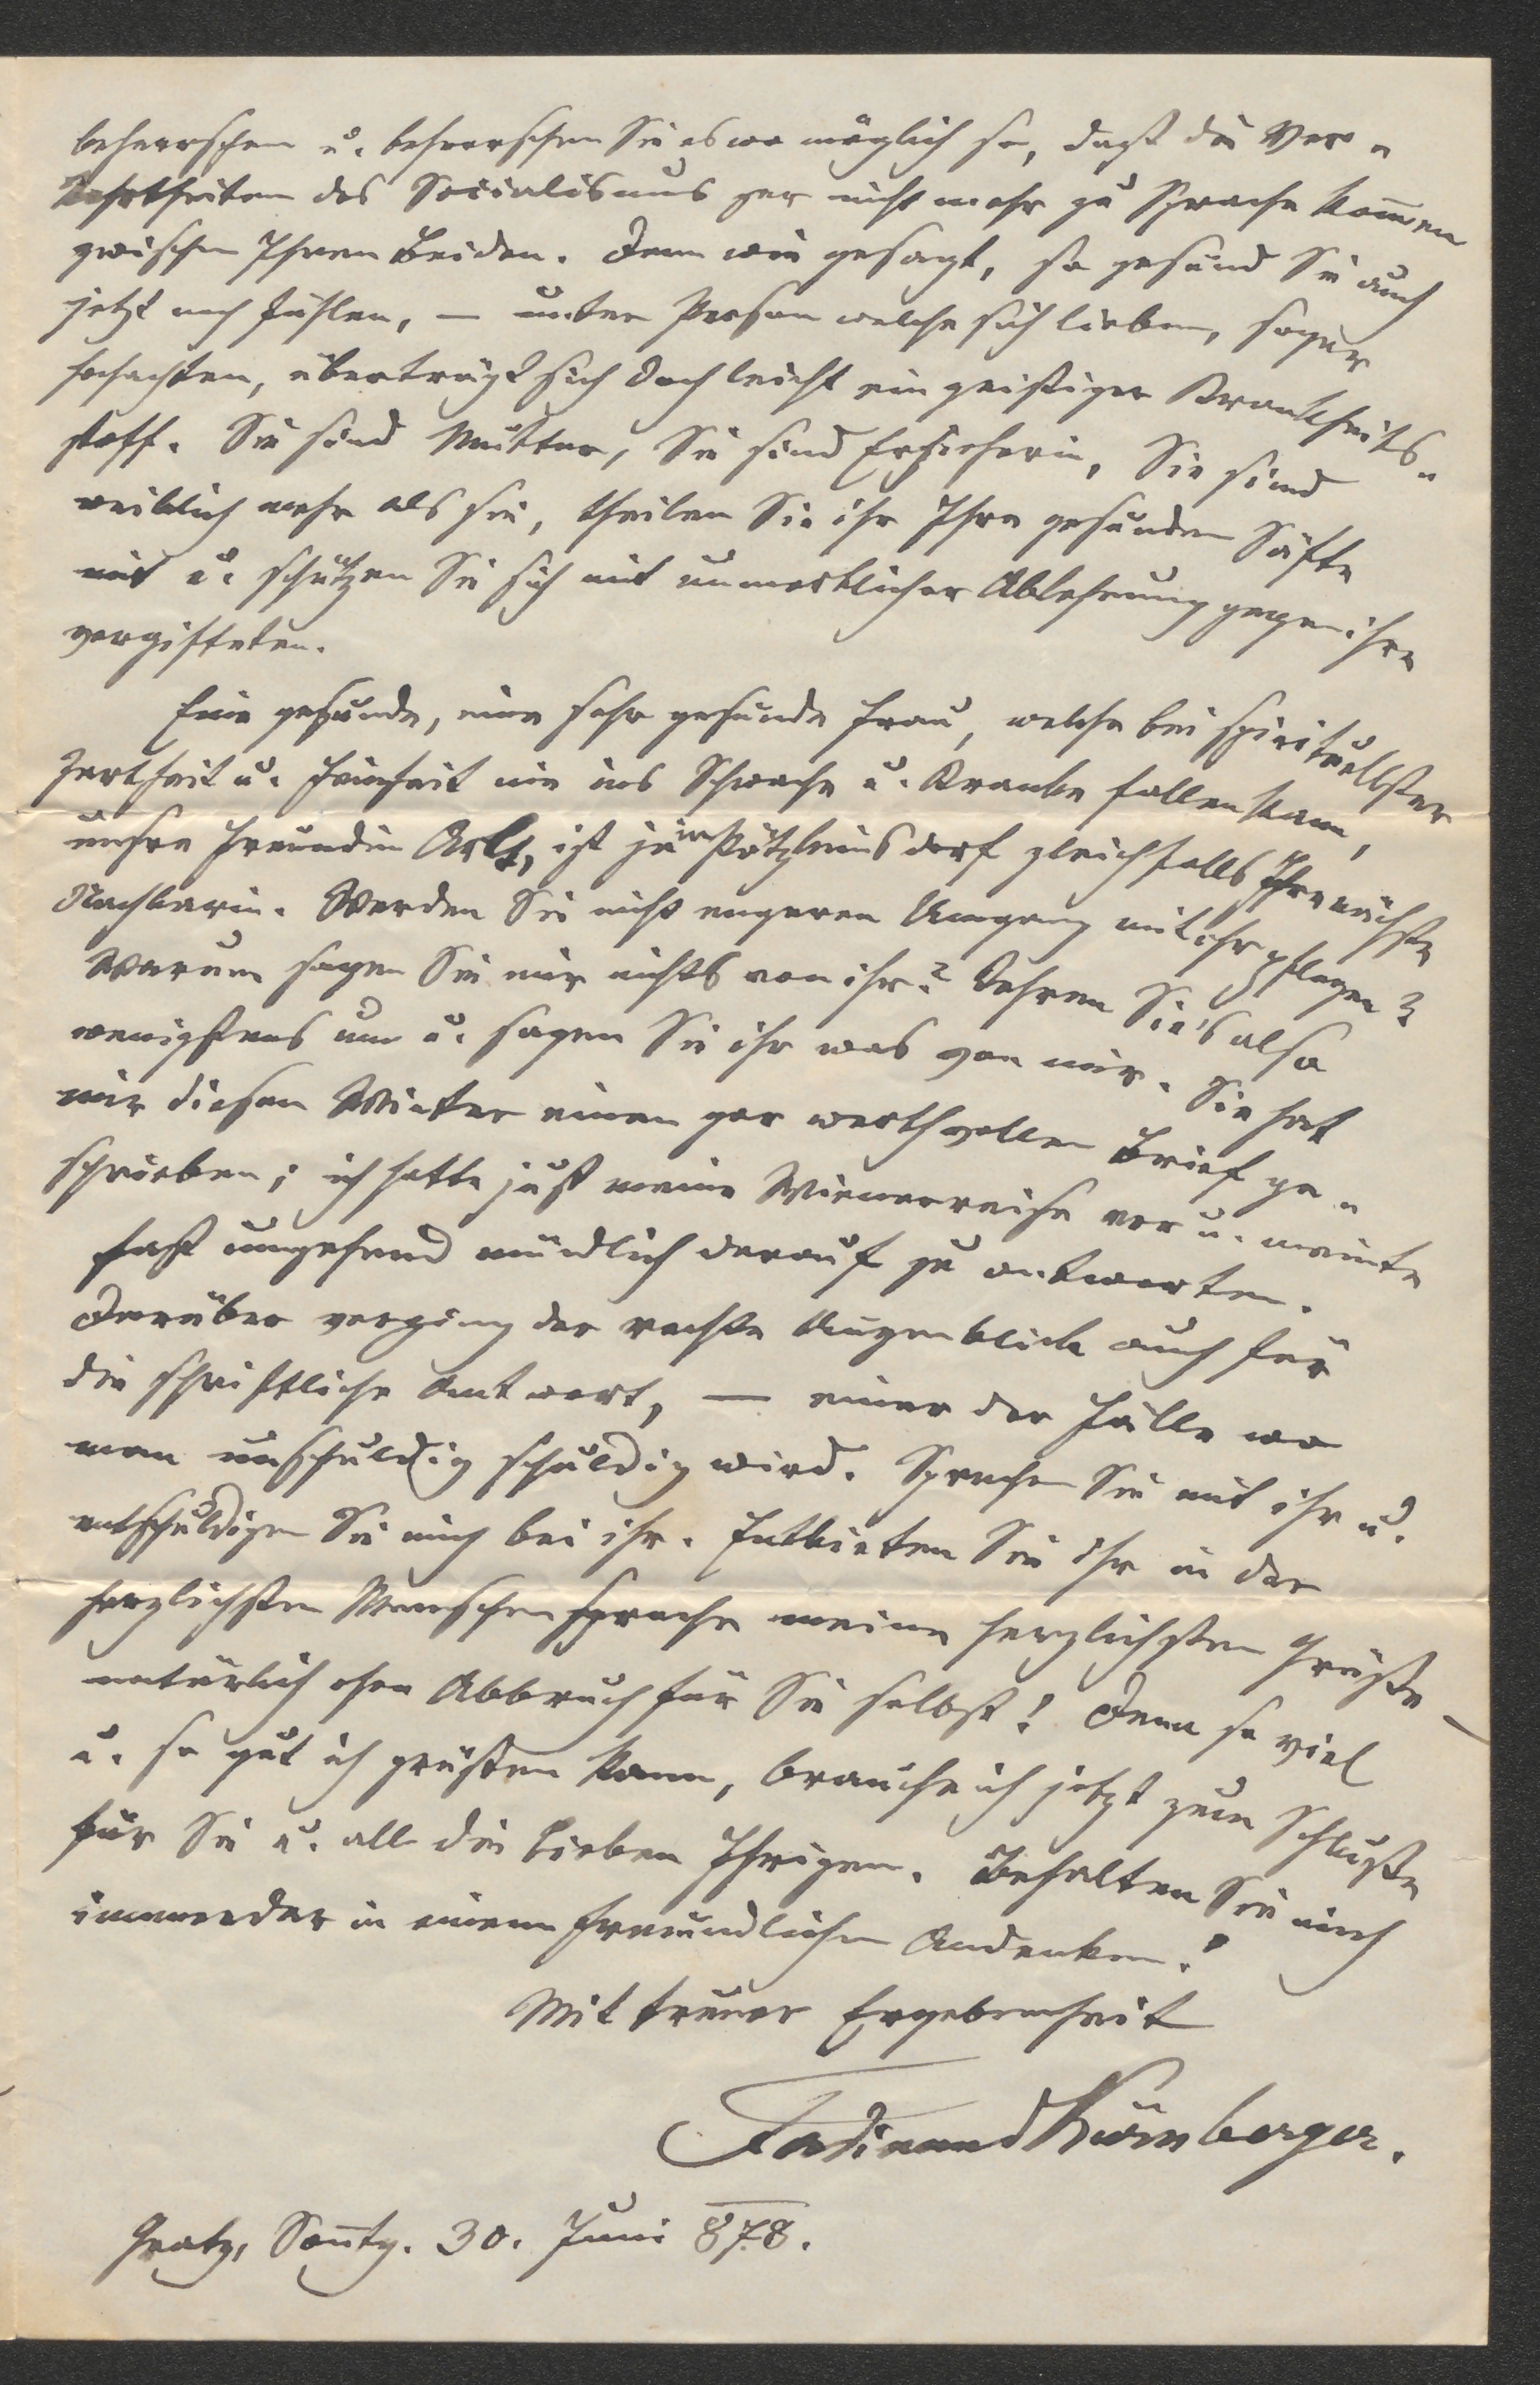 beherrschen u. beherrschen Sie es wo möglich so, daß die Ver-
kehrtheiten des Socialismus gar nicht mehr zu Sprache kom̄en
zwischen Ihnen Beiden. Denn wie gesagt, so gesund Sie auch
jetzt noch fühlen, — unter Person welche sich lieben, sogar
hochachten, überträgt sich doch leicht ein geistiger Krankheits-
stoff. Sie sind Mutter, Sie sind Erzieherin, Sie sind
weiblich mehr als sie, theilen Sie ihr Ihre gesunden Säfte
mit u. schützen Sie sich mit unmerklicher Ablehnung gegen ihre
vergifteten.
Eine gesunde, eine sehr gesunde Frau, welche bei spirituellster
Zartheit u. Feinheit nie ins Schwache u. Kranke fallen kann,
unsre Freundin Arlt, ist ja in Pötzleinsdorf gleichfalls Ihre nächste
Nachbarin. Werden Sie nicht engeren Umgang mit ihr pflegen?
Warum sagen Sie mir nichts von ihr? Kehren Sie's also
wenigstens um u. sagen Sie ihr was von mir. Sie hat
mir diesen Winter einen gar werthvollen Brief ge-
schrieben; ich hatte just meine Wienerreise vor u. meinte
fast umgehend mündlich darauf zu antworten.
Darüber verging der rechte Augenblick auch für
die schriftliche Antwort, — einer der Fälle wo
man unschuldig schuldig wird. Sprechen Sie mit ihr u.
entschuldigen Sie mich bei ihr. Entbieten Sie ihr in der
herzlichsten Menschensprache meine herzlichsten Grüße –
natürlich ohne Abbruch für Sie selbst! Denn so viel
u. so gut ich grüßen kann, brauche ich jetzt zum Schluße
für Sie u. all die lieben Ihrigen. Behalten Sie mich
immerdar in einem freundlichen Andenken!
Mit treuer Ergebenheit
Ferdinand Kürnberger.
Gratz, Son̄tg. 30. Juni 878.